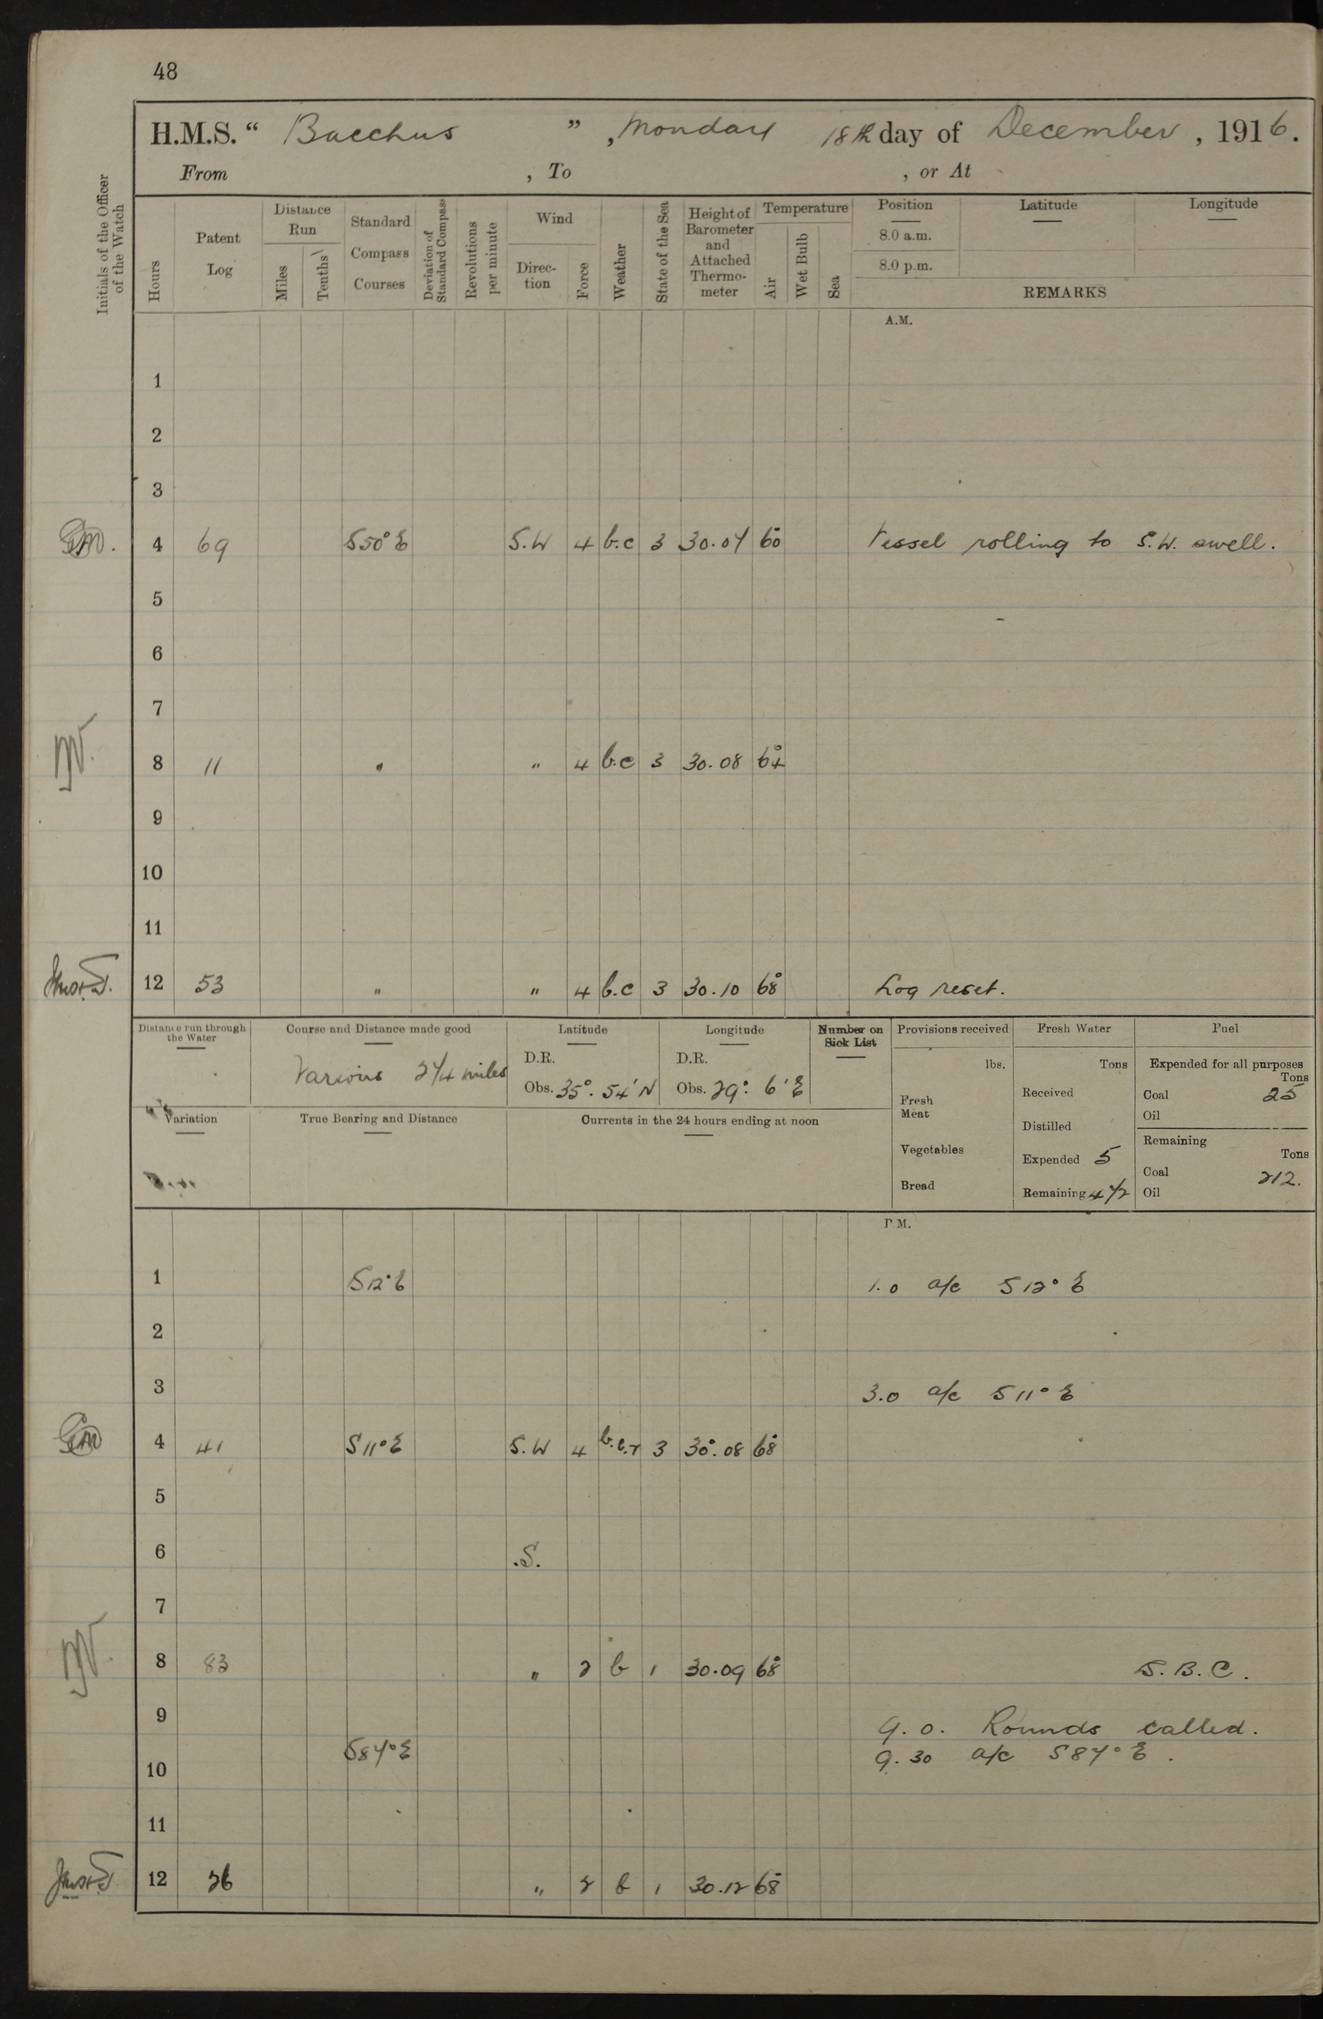 48
H.M.S. “ Bacchus ” , Monday 18th day of December , 1916.
From , To , or At
Initials of the Officer of the Watch
Hours
Patent Log
Distance Run
Miles
Tenths
Standard Compass Courses
Deviation of Standard Compass
Revolutions per minute
Wind
Direc-tion
Force
Weather
State of the Sea
Height of Barometer and Attached Thermo-meter
Temperature
Air
Wet Bulb
Sea
Position
8.0 a.m.
8.0 p.m.
Latitude
Longitude
REMARKS
A.M.
1
2
3
4 69 S50°E S.W 4 b.c 3 30.07 60° Vessel rolling to S.W. swell.
5
6
7
8 11 " " 4 b.c 3 30.08 64°
9
10
11
12 53 " " 4 b.c 3 30.10 68° Log reset.
Distance run through the Water
Course and Distance made good
Various 274 miles
Latitude
D.R.
Obs. 35°. 54' N
Longitude
D.R.
Obs. 29°. 6' E
Number on Sick List
Provisions received
lbs.
Fresh Meat
Vegetables
Bread
Fresh Water
Tons
Received
Distilled
Expended 5
Remaining 472
Fuel
Expended for all purposes
Tons
Coal 25
Oil
Remaining
Tons
Coal 212.
Oil
Variation
True Bearing and Distance
Currents in the 24 hours ending at noon
P.M.
1 S12°E 1.0 a/c S 12° E
2
3 3.0 a/c S 11° E
4 41 S11°E S.W 4 b.c.r 3 30.08 68°
5
6 S.
7
8 83 " 2 b 1 30.09 68° S.B.C.
9 9.0. Rounds called.
S87°E 9.30 a/c S 87° E.
10
11
12 26 " 2 b 1 30.12 68°